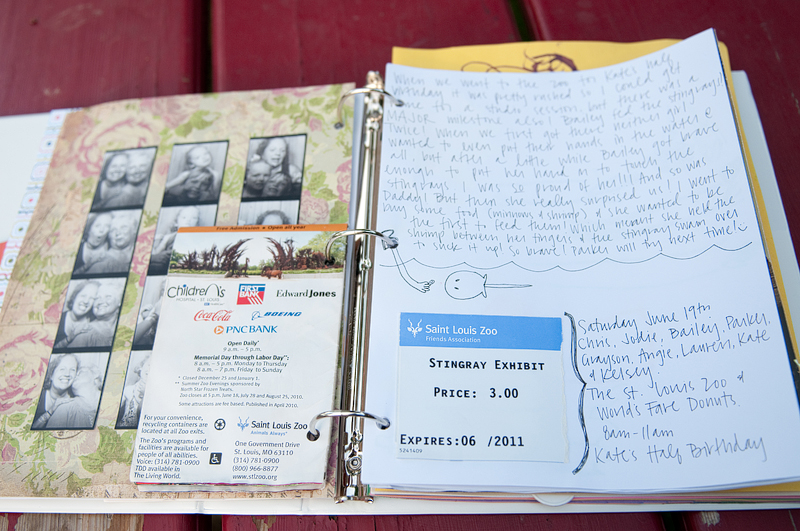 Free Admission • Open all year!
Children's
HOSPITAL • ST. LOUIS
FIRST BANK
Edward Jones
Coca-Cola
BOEING
PNCBANK
Open Daily*
9 a.m. – 5 p.m.
Memorial Day through Labor Day**:
8 a.m. – 5 p.m. Monday to Thursday
8 a.m. – 7 p.m. Friday to Sunday
* Closed December 25 and January 1.
** Summer Zoo Evenings sponsored by
North Star Frozen Treats.
Zoo closes at 5 p.m. June 18, July 28 and August 25, 2010.
Some attractions are fee based. Published in April 2010.
For your convenience,
recycling containers are
located at all Zoo exits.
The Zoo's programs and
facilities are available for
people of all abilities.
Voice: (314) 781-0900
TDD available in
The Living World.
Saint Louis Zoo
Animals Always
One Government Drive
St. Louis, MO 63110
(314) 781-0900
(800) 966-8877
www.stlzoo.org
When we went to the zoo for Kate's half
birthday it was pretty rained so I could get
some for a under session. but there was a
MAJOR milestone also! Bailey fed the stingrays!
Twice! When we first got there neither girl
wanted to even put their hands in the water @
all, but after a little while Bailey got brave
enough to put her hand in to touch the
stingrays. I was so proud of her!!! And so was
Daddy! But then she really surprised us! I went to
buy some food (minnows & shrimp) & she wanted to be
the first to feed them! Which meant she held the
shrimp between her fingers & the stingray swam over
to suck it up! So brave! Parker will try next time!
Saint Louis Zoo
Friends Association
STINGRAY EXHIBIT
PRICE: 3.00
EXPIRES:06 /2011
5241409
Saturday June 19th
Chris, Jodie, Bailey, Parker,
Grayson, Angie, Lauren, Kate
& Kelsey.
The St. Louis Zoo &
World's Fare Donuts.
8am-11am
Kate's Half Birthday